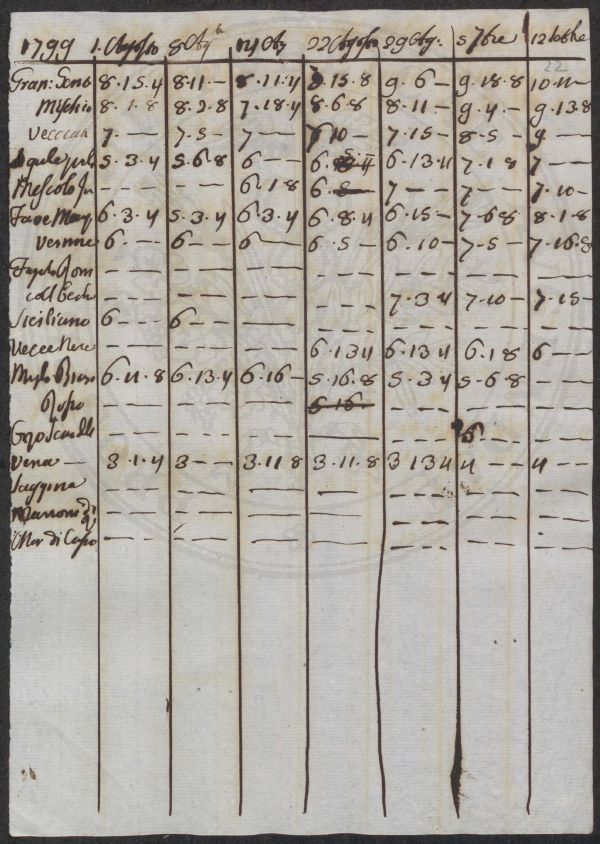 1799 1. Agosto 8 Ag. 14 Ag 22 Agosto 29 Ag. 5 7bre 12
22
Gran: 8.15.4 8.11— 8.11.4 8.15.8 9.6— 9.18.8 10.11—
Mischio 8.1.8 8.2.8 7.18.4 8.6.8 8.11— 9.4— 9.13.8
7.— 7.5— 7— 7 10— 7.15— 8.5— 9—
5.3.4 5.6.8 6— 6. 6.13.4 7.1 8 7—
— — — — — — 6.1.8 6. 7— 7.— 7.10—
Fave 6.3.4 5.3.4 6.3.4 6.8.4 6.15— 7.6.8 8.1.8
Vernine 6.— 6— 6— 6.5— 6.10— 7.5— 7.16.8
— — — — — — — — — — — — — —
— — — — — — — — 7.3 4 7.10— 7.15—
Siciliano 6— 6— — — — — — — — — — —
Vecce Nere — — — — — — 6.13 4 6.13 4 6.1 8 6—
6.11.8 6.13.4 6.16— 5.16.8 5.3 4 5.6.8 — —
Rosso — — — — — — 6 16. — — — — — —
— — — — — — — — — — 6 — — —
Vena — 3.1.4 3— 3.11 8 3.11.8 3 13 4 4 — — 4 —
Saggina — — — — — — — — — — — — — —
Marroni — — — — — — — — — — — — — —
di Capo — — — — — — — — — — — — — —